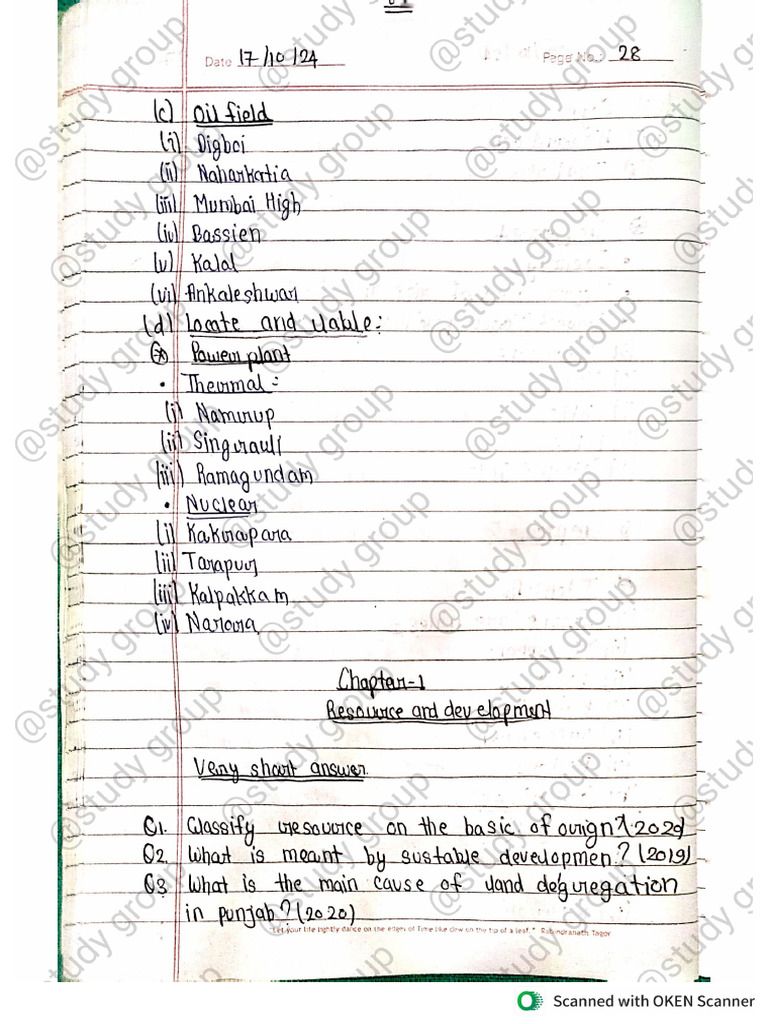 Date 17/10/24 Page No.: 28
(c) Oil field
(i) Digboi
(ii) Naharkatia
(iii) Mumbai High
(iv) Bassien
(v) Kalal
(vi) Ankaleshwar
(d) Locate and lable:
Power plant
• Thermal:
(i) Namrup
(ii) Singrauli
(iii) Ramagundam
• Nuclear
(i) Kakrapara
(ii) Tarapur
(iii) Kalpakkam
(iv) Narora
Chapter-1
Resource and development
Very short answer
Q1. Classify resource on the basic of orign? (2020)
Q2. What is meant by sustable developmen? (2019)
Q3. What is the main cause of land degregation
in punjab? (2020)
"Let your life lightly dance on the edges of Time like dew on the tip of a leaf." Rabindranath Tagor
@study group
Scanned with OKEN Scanner